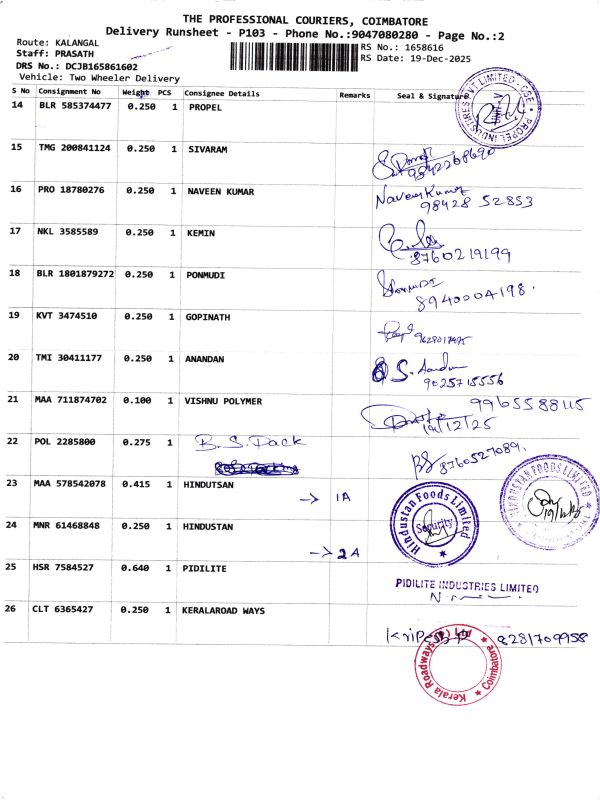 THE PROFESSIONAL COURIERS, COIMBATORE
Delivery Runsheet - P103 - Phone No.:9047080280 - Page No.:2
Route: KALANGAL
Staff: PRASATH
DRS No.: DCJB165861602
Vehicle: Two Wheeler Delivery
RS No.: 1658616
RS Date: 19-Dec-2025
S No Consignment No Weight PCS Consignee Details Remarks Seal & Signature
14 BLR 585374477 0.250 1 PROPEL
PROPEL INDUSTRIES PVT LIMITED - CBE
15 TMG 200841124 0.250 1 SIVARAM
9842268690
16 PRO 18780276 0.250 1 NAVEEN KUMAR Naveen Kumar
98428 52853
17 NKL 3585589 0.250 1 KEMIN
8760219199
18 BLR 1801879272 0.250 1 PONMUDI
8940004198.
19 KVT 3474510 0.250 1 GOPINATH
20 TMI 30411177 0.250 1 ANANDAN
9025715556
21 MAA 711874702 0.100 1 VISHNU POLYMER 9965588115
19/12/25
22 POL 2285800 0.275 1 B.S. Pack
8760527089.
23 MAA 578542078 0.415 1 HINDUTSAN
→ 1A
Hindustan Foods Limited
Security
HINDUSTAN FOODS LIMITED
24 MNR 61468848 0.250 1 HINDUSTAN
→ 2A
25 HSR 7584527 0.640 1 PIDILITE
PIDILITE INDUSTRIES LIMITED
26 CLT 6365427 0.250 1 KERALAROAD WAYS
8281709958
Kerala Roadways
Coimbatore